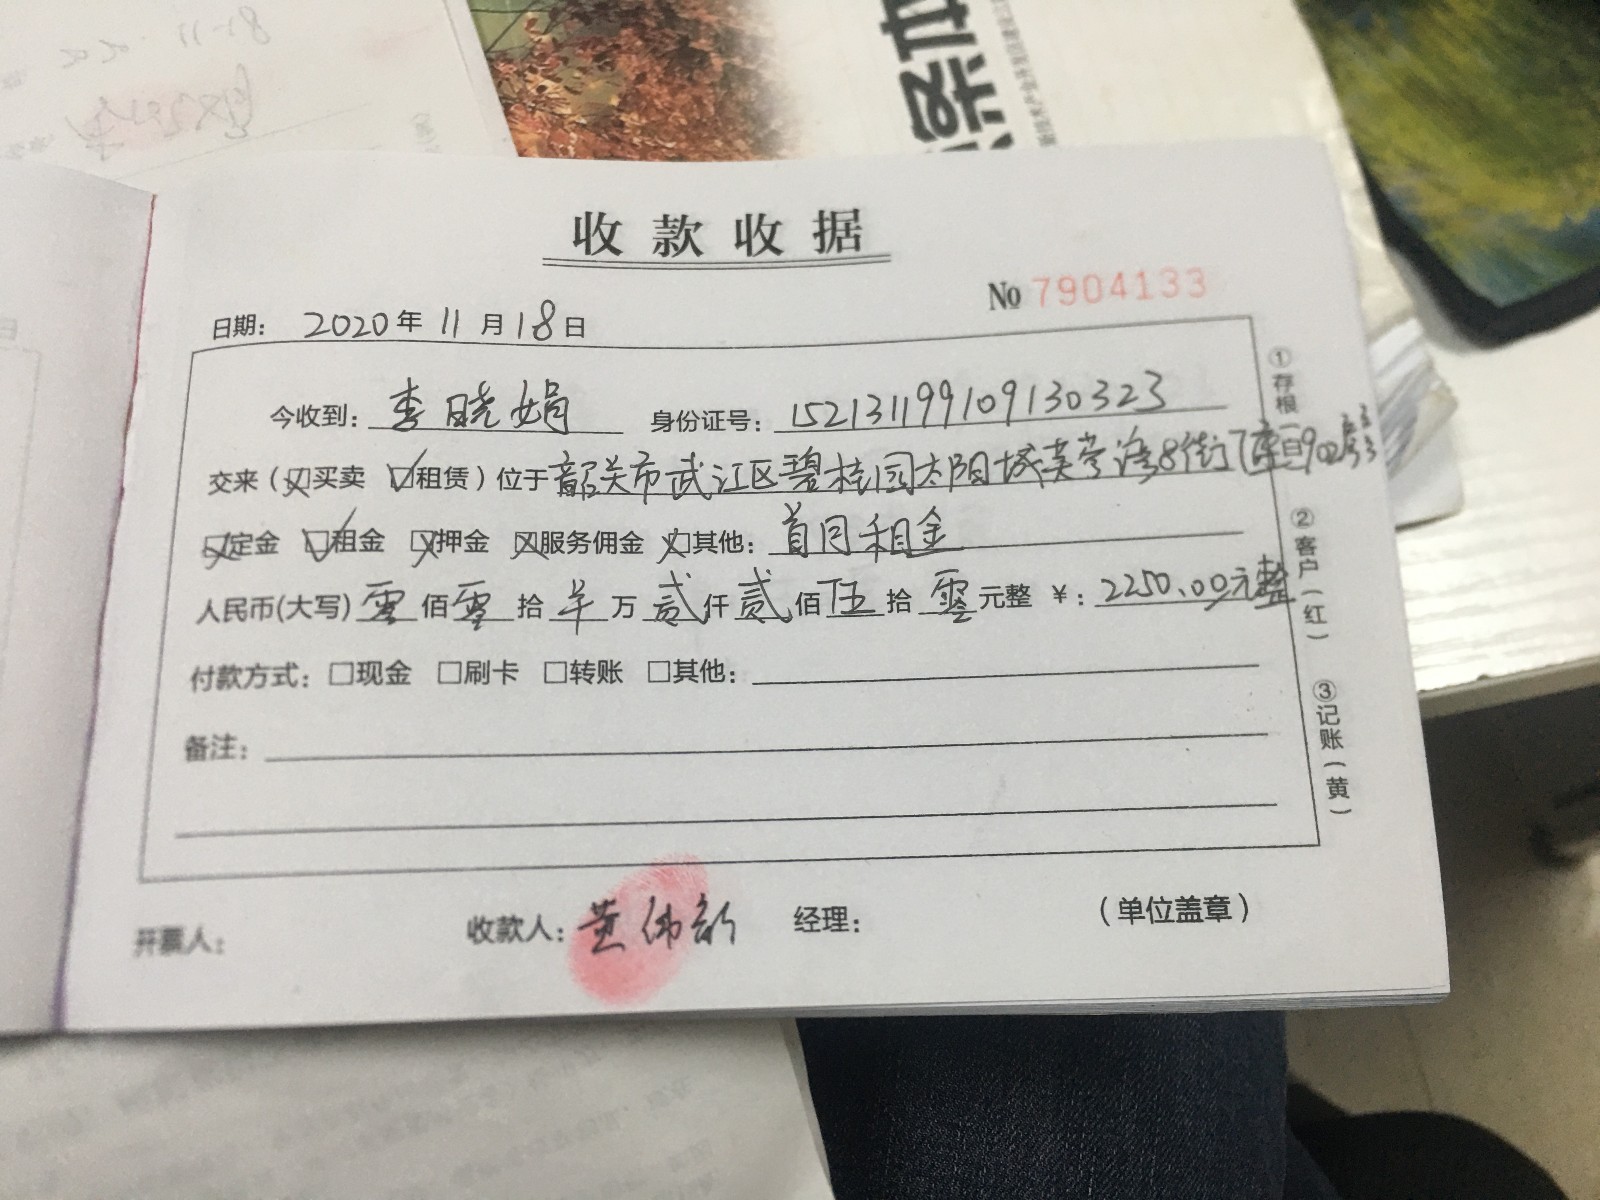 收款收据
No 7904133
日期: 2020年 11月 18日
今收到: 李晓娟 身份证号: 152131199109130323
交来(☒买卖 ☑租赁)位于韶关市武江区碧桂园太阳城芙蓉湾8街7座902房
☒定金 ☑租金 ☒押金 ☒服务佣金 ☒其他: 首月租金
人民币(大写)零佰零拾零万贰仟贰佰伍拾零元整 ¥: 2250.00元整
付款方式: □现金 □刷卡 □转账 □其他:
备注:
开票人: 收款人: 黄伟新 经理: (单位盖章)
①存根(白)
②客户(红)
③记账(黄)